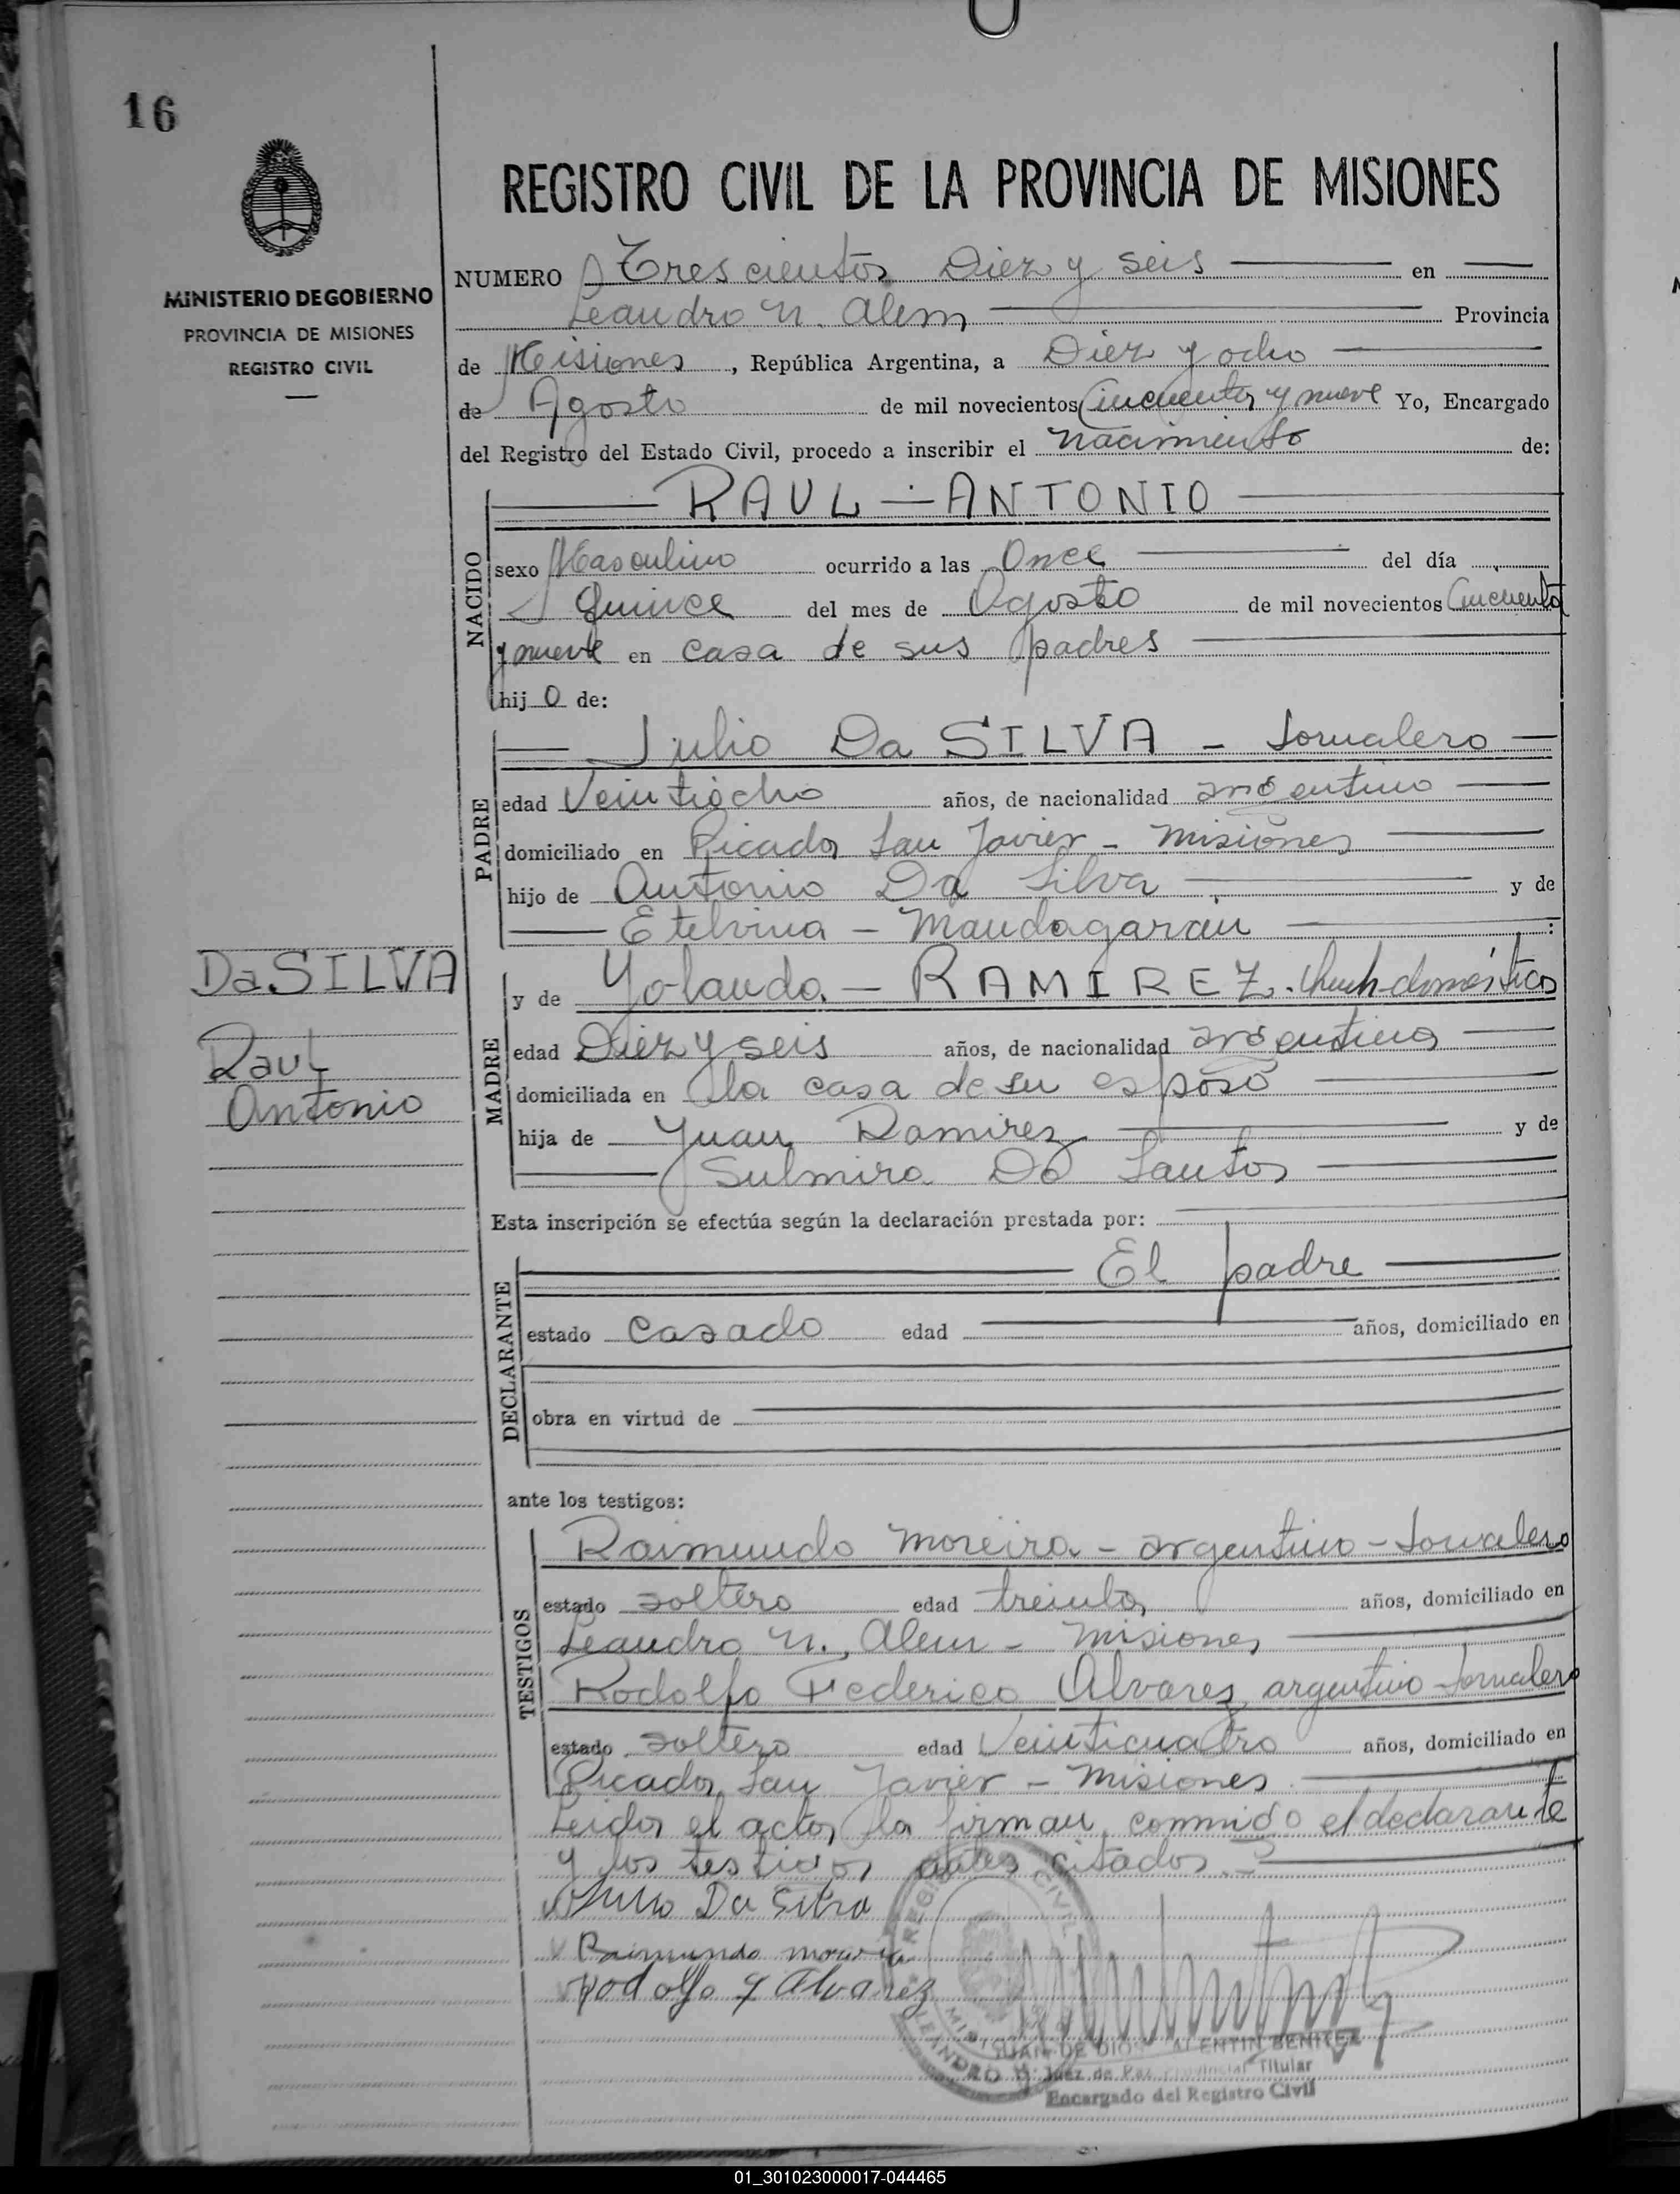 16
MINISTERIO DE GOBIERNO
PROVINCIA DE MISIONES
REGISTRO CIVIL
REGISTRO CIVIL DE LA PROVINCIA DE MISIONES
NUMERO Trescientos Diez y seis en
Leandro N. Alem Provincia
de Misiones, República Argentina, a Diez y ocho
de Agosto de mil novecientos Cincuenta y nueve Yo, Encargado
del Registro del Estado Civil, procedo a inscribir el nacimiento de:
NACIDO
RAUL - ANTONIO
sexo Masculino ocurrido a las Once del día
Quince del mes de Agosto de mil novecientos Cincuenta
y nueve en casa de sus padres
hijo de:
PADRE
Julio Da SILVA - Jornalero
edad Veintiocho años, de nacionalidad argentino
domiciliado en Picada San Javier - Misiones
hijo de Antonio Da Silva y de
Etelvina - Mandagarán
DaSILVA
Raul
Antonio
MADRE
y de Yolanda - RAMIREZ. domésticos
edad Diez y seis años, de nacionalidad argentina
domiciliada en la casa de su esposo
hija de Juan Ramirez y de
Sulmira Da Santos
Esta inscripción se efectúa según la declaración prestada por:
DECLARANTE
El padre
estado casado edad años, domiciliado en
obra en virtud de
ante los testigos:
TESTIGOS
Raimundo Moreira - argentino - Jornalero
estado soltero edad treinta años, domiciliado en
Leandro N. Alem - Misiones
Rodolfo Federico Alvarez, argentino Jornalero
estado soltero edad Veinticuatro años, domiciliado en
Picada San Javier - Misiones
Leida el acta, la firman conmigo el declarante
y los testigos antes citados.
Julio Da Silva
Raimundo
Rodolfo F Alvarez
REGISTRO CIVIL
LEANDRO N.
JUAN DE DIOS VALENTIN BENITEZ
Juez de Paz Provincial Titular
Encargado del Registro Civil
01_301023000017-044465